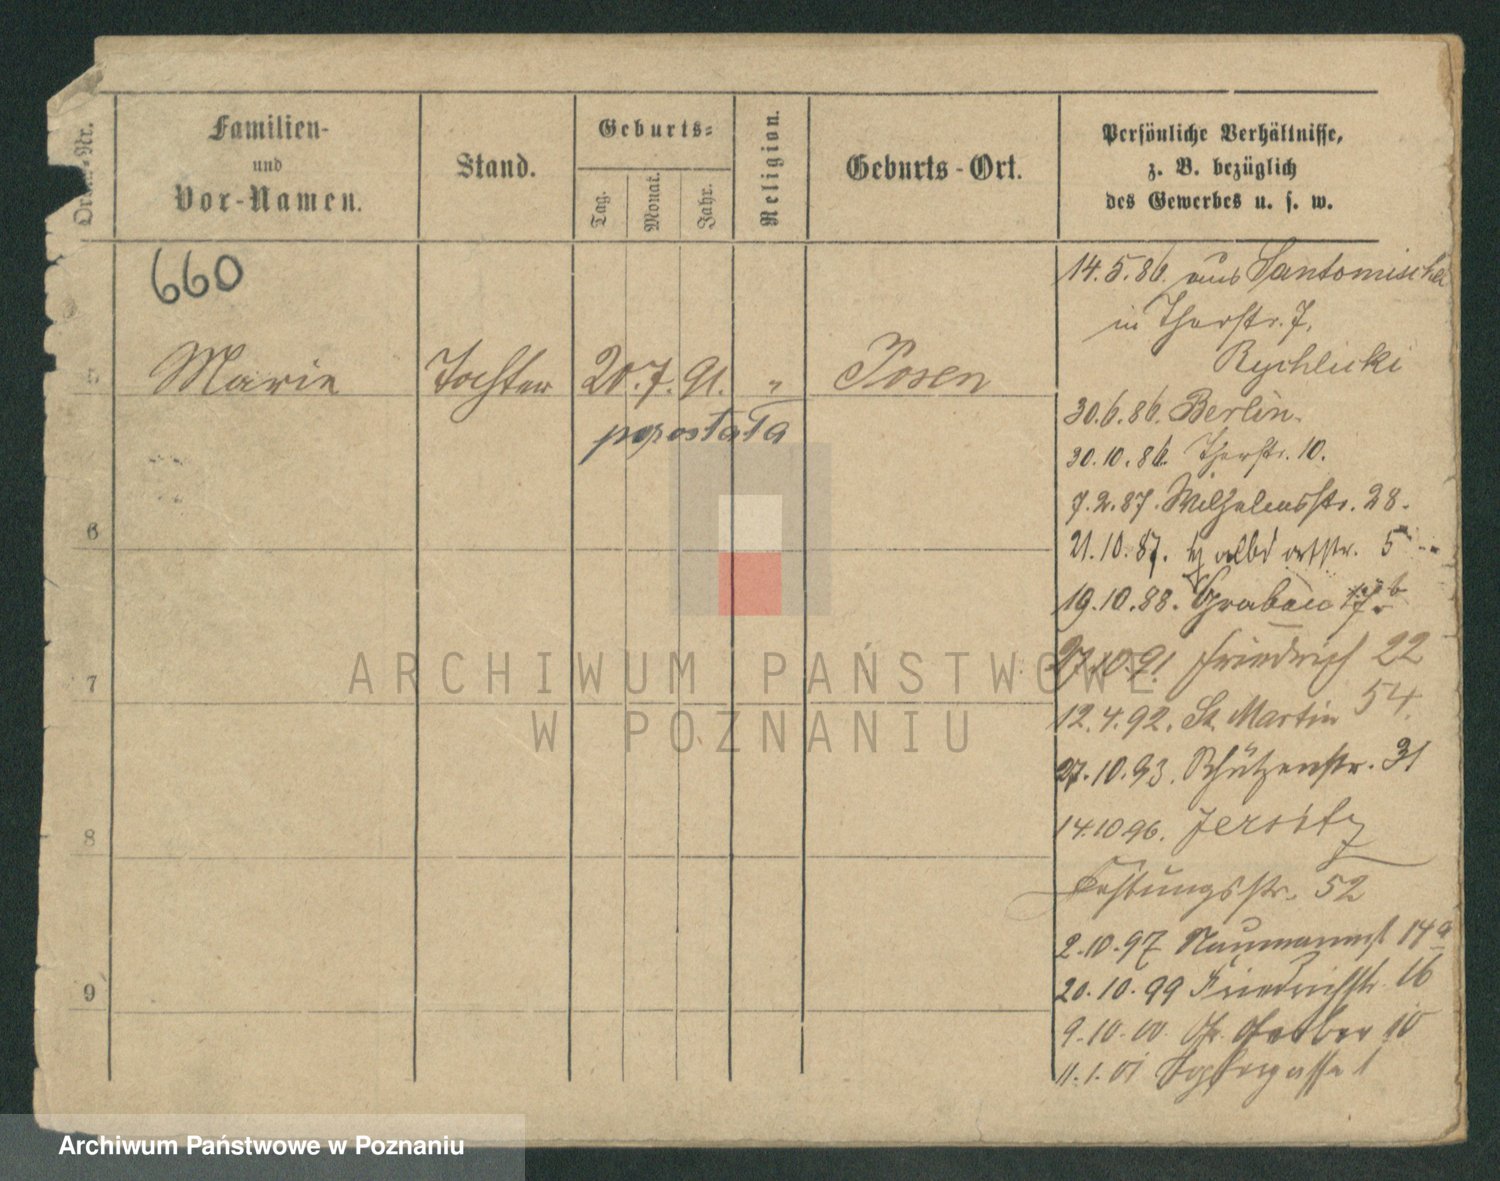 Ordn.-Nr.
Familien-
und
Vor-Namen.
Stand.
Geburts-
Tag.
Monat.
Jahr.
Religion.
Geburts-Ort.
Persönliche Verhältnisse,
z. B. bezüglich
des Gewerbes u. s. w.
660
5 Marie Tochter 20. 7. 91. " Posen
pozostała
6
7
8
9
14. 5. 86. aus Santomischel
in Thorstr. 7.
Rychlicki
30. 6. 86. Berlin.
30. 10. 86. Thorstr. 10.
7. 2. 87. Wilhelmsstr. 28.
21. 10. 87. 5
19. 10. 88. Graben 7b
27. 10. 91. Friedrich 22
12. 4. 92. St. Martin 54.
27. 10. 93. Schützenstr. 31
14. 10 96. Jersitz
Festungsstr. 52
2. 10. 97 Naumannst 14a
20. 10. 99 Friedrichstr 16
9. 10. 00. Gr. Gerber 10
11. 1. 01 1
ARCHIWUM PAŃSTWOWE
W POZNANIU
Archiwum Państwowe w Poznaniu